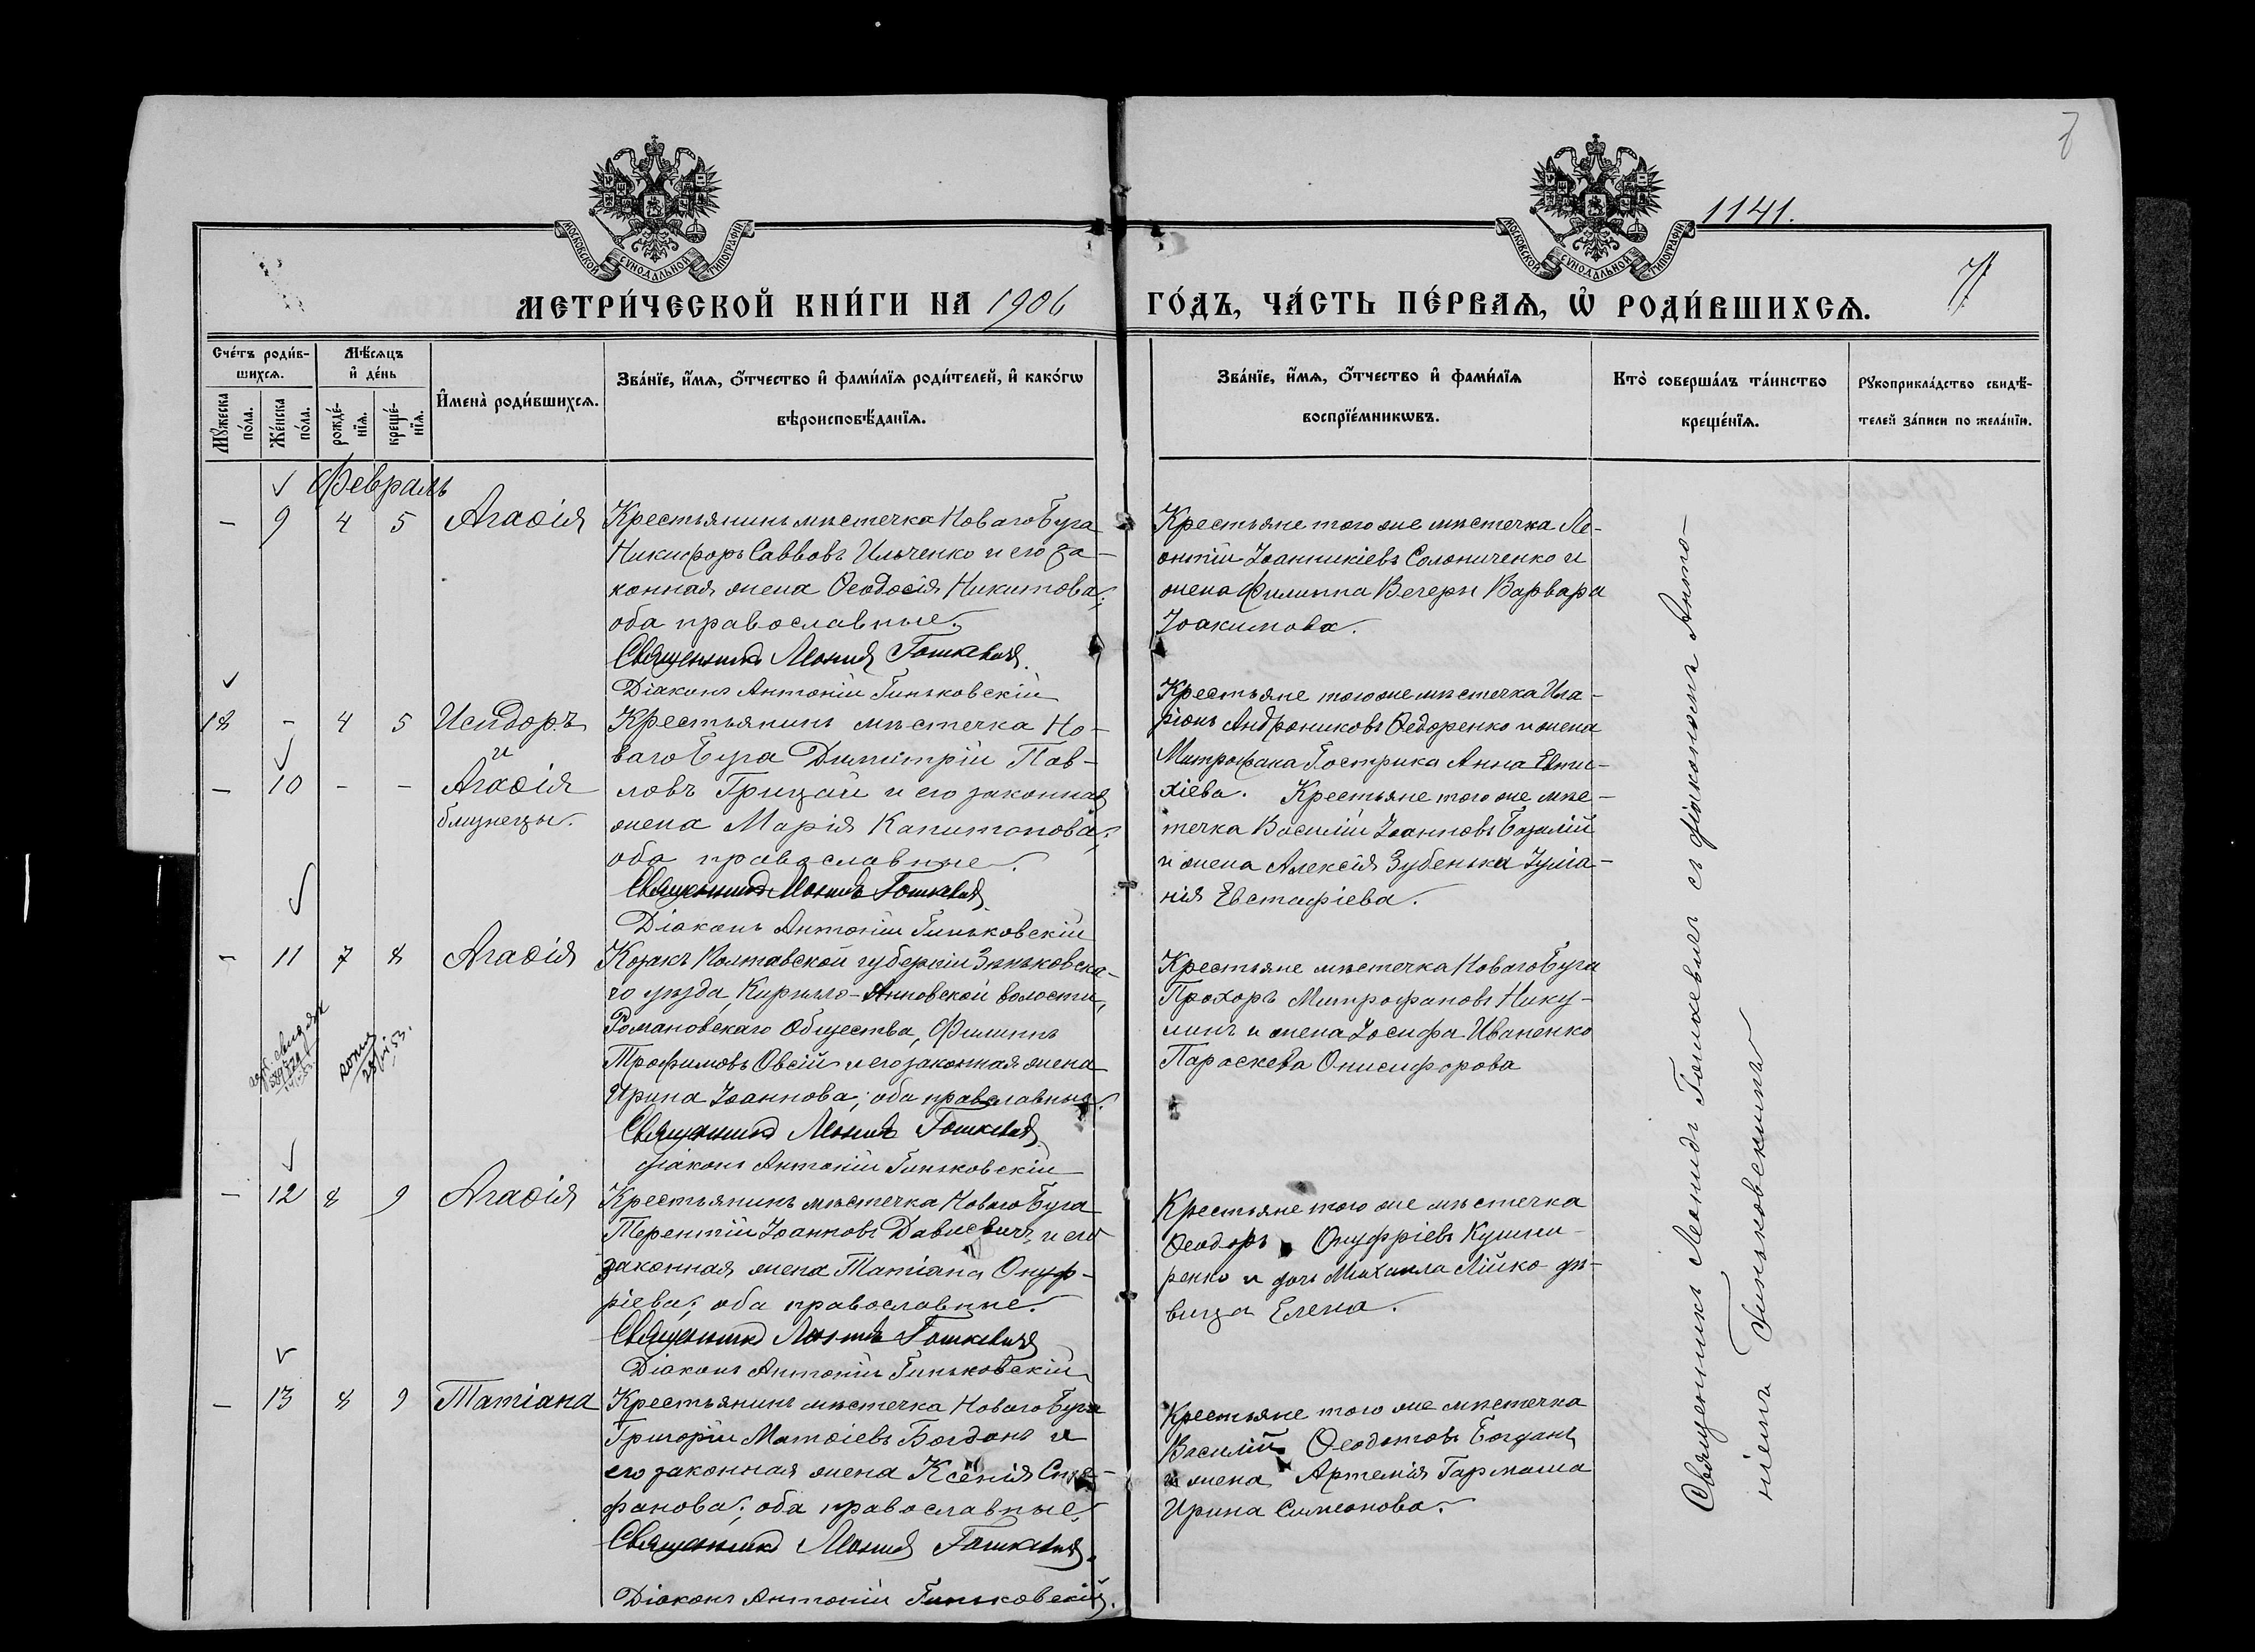 МОСКОВСКОЙ СѴНОДАЛЬНОЙ ТИПОГРАФІИ
МОСКОВСКОЙ СѴНОДАЛЬНОЙ ТИПОГРАФІИ
1141.
7
МЕТРИ́ЧЕСКОЙ КНИ́ГИ НА 1906 ГО́ДЪ, ЧА́СТЬ ПЕ́РВАѦ, Ѡ РОДИ́ВШИХСѦ.
Сче́тъ роди́в-
шихсѧ.
Мꙋжеска по́ла.
Же́нска по́ла.
Мѣ́сѧцъ
и де́нь
рожде́-
нїѧ.
креще́-
нїѧ.
И҆мена̀ роди́вшихсѧ.
Зва́нїе, и́мѧ, ѻ҆́тчество и҆ фами́лїѧ роди́телей, и҆ како́гѡ
вѣроисповѣ́данїѧ.
Зва́нїе, и́мѧ, ѻ҆́тчество и҆ фами́лїѧ
воспрїе́мникѡвъ.
Кто̀ соверша́лъ та́инство
креще́нїѧ.
Рꙋкоприкла́дство свидѣ́-
телей за́писи по жела́нїю.
Февраль
– 9 4 5 Агаѳія
Крестьянинъ мѣстечка Новаго Буга
Никифоръ Саввовъ Ильченко и его за-
конная жена Ѳеодосія Никитова;
оба православные.
Священникъ Леонид Гошкевич.
Діаконъ Антоній Гиньковскій
Крестьяне того же мѣстечка Ле-
онтій Іоанникіевъ Солониченко и
жена Филиппа Вечери Варвара
Іоакимова.
18 – 4 5 Исидоръ
и
– 10 – – Агаѳія
близнецы.
Крестьянинъ мѣстечка Но-
ваго Буга Димитрій Пав-
ловъ Грицай и его законная
жена Марія Капитонова;
оба православные.
Священникъ Леонид Гошкевич
Діаконъ Антоній Гиньковскій
Крестьяне того же мѣстечка Ила-
ріонъ Андрониковъ Ѳедоренко и жена
Митрофана Гострика Анна Евти-
хіева. Крестьяне того же мѣс-
течка Василій Іоанновъ Базилій
и жена Алексія Зубенька Іуліа-
нія Евстафіева.
– 11 7 8 Агаѳія
Козакъ Полтавской губерніи Зѣньковска-
го уѣзда, Кирилло-Анновской волости,
Романовскаго Общества, Филиппъ
Трофимовъ Овсій и его законная жена
Ирина Іоаннова; оба православные.
Священникъ Леонид Гошкевич
Діаконъ Антоній Гиньковскій
Крестьяне мѣстечка Новаго Буга
Прохоръ Митрофановъ Нику-
линъ и жена Іосифа Иваненко
Параскева Онисифорова
копия
– 12 8 9 Агаѳія
Крестьянинъ мѣстечка Новаго Буга
Терентій Іоанновъ Давиевичъ и его
законная жена Татіана Онуф-
ріева; оба православные.
Священникъ Леонид Гошкевич
Діаконъ Антоній Гиньковскій
Крестьяне того же мѣстечка
Ѳеодоръ Онуфріевъ Кушни-
ренко и дочь Михаила Лійко дѣ-
вица Елена.
– 13 8 9 Татіана
Крестьянинъ мѣстечка Новаго Буга
Григорій Матѳіевъ Богданъ и
его законная жена Ксенія Сте-
фанова; оба православные.
Священникъ Леонид Гошкевич.
Діаконъ Антоній Гиньковскій.
Крестьяне того же мѣстечка
Василій Ѳеодотовъ Богданъ
и жена Артемія Гармаша
Ирина Симеонова.
Священникъ Леонидъ Гошкевичъ съ діакономъ Анто-
ніемъ Гиньковскимъ